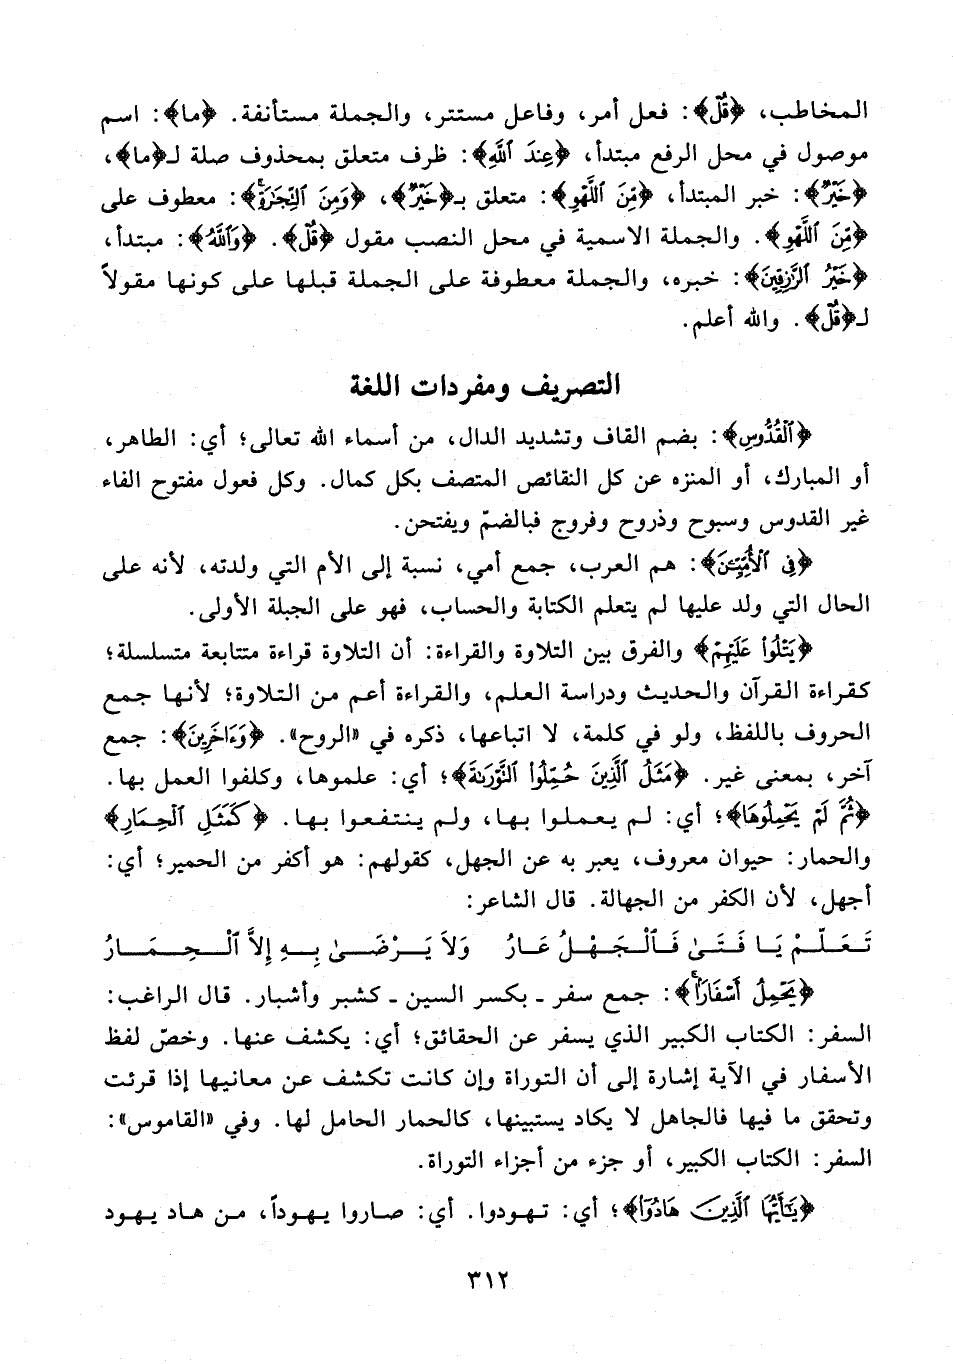 المخاطب، ﴿قُلْ﴾: فعل أمر، وفاعل مستتر، والجملة مستأنفة. ﴿ما﴾: اسم
موصول في محل الرفع مبتدأ، ﴿عِندَ ٱللَّهِ﴾: ظرف متعلق بمحذوف صلة لـ﴿ما﴾،
﴿خَيْرٌ﴾: خبر المبتدأ، ﴿مِّنَ ٱللَّهْوِ﴾: متعلق بـ﴿خَيْرٌ﴾، ﴿وَمِنَ ٱلتِّجَٰرَةِۚ﴾: معطوف على
﴿مِّنَ ٱللَّهْوِ﴾. والجملة الاسمية في محل النصب مقول ﴿قُلْ﴾. ﴿وَٱللَّهُ﴾: مبتدأ،
﴿خَيْرُ ٱلرَّٰزِقِينَ﴾: خبره، والجملة معطوفة على الجملة قبلها على كونها مقولاً
لـ﴿قُلْ﴾. والله أعلم.
التصريف ومفردات اللغة
﴿ٱلْقُدُّوسِ﴾: بضم القاف وتشديد الدال، من أسماء الله تعالى؛ أي: الطاهر،
أو المبارك، أو المنزه عن كل النقائص المتصف بكل كمال. وكل فعول مفتوح الفاء
غير القدوس وسبوح وذروح وفروج فبالضمّ ويفتحن.
﴿فِى ٱلْأُمِّيِّـۧنَ﴾: هم العرب، جمع أمي، نسبة إلى الأم التي ولدته، لأنه على
الحال التي ولد عليها لم يتعلم الكتابة والحساب، فهو على الجبلة الأولى.
﴿يَتْلُوا۟ عَلَيْهِمْ﴾ والفرق بين التلاوة والقراءة: أن التلاوة قراءة متتابعة متسلسلة؛
كقراءة القرآن والحديث ودراسة العلم، والقراءة أعم من التلاوة؛ لأنها جمع
الحروف باللفظ، ولو في كلمة، لا اتباعها، ذكره في «الروح». ﴿وَءَاخَرِينَ﴾: جمع
آخر، بمعنى غير. ﴿مَثَلُ ٱلَّذِينَ حُمِّلُوا۟ ٱلتَّوْرَىٰةَ﴾؛ أي: علموها، وكلفوا العمل بها.
﴿ثُمَّ لَمْ يَحْمِلُوهَا﴾؛ أي: لم يعملوا بها، ولم ينتفعوا بها. ﴿كَمَثَلِ ٱلْحِمَارِ﴾
والحمار: حيوان معروف، يعبر به عن الجهل، كقولهم: هو أكفر من الحمير؛ أي:
أجهل، لأن الكفر من الجهالة. قال الشاعر:
تَعَلَّمْ يَا فَتَىٰ فَٱلْجَهْلُ عَارُ وَلاَ يَرْضَىٰ بِهِ إِلاَّ ٱلْحِمَارُ
﴿يَحْمِلُ أَسْفَارًۢا﴾: جمع سفر ـ بكسر السين ـ كشبر وأشبار. قال الراغب:
السفر: الكتاب الكبير الذي يسفر عن الحقائق؛ أي: يكشف عنها. وخصّ لفظ
الأسفار في الآية إشارة إلى أن التوراة وإن كانت تكشف عن معانيها إذا قرئت
وتحقق ما فيها فالجاهل لا يكاد يستبينها، كالحمار الحامل لها. وفي «القاموس»:
السفر: الكتاب الكبير، أو جزء من أجزاء التوراة.
﴿يَٰٓأَيُّهَا ٱلَّذِينَ هَادُوٓا۟﴾؛ أي: تهودوا. أي: صاروا يهوداً، من هاد يهود
٣١٢